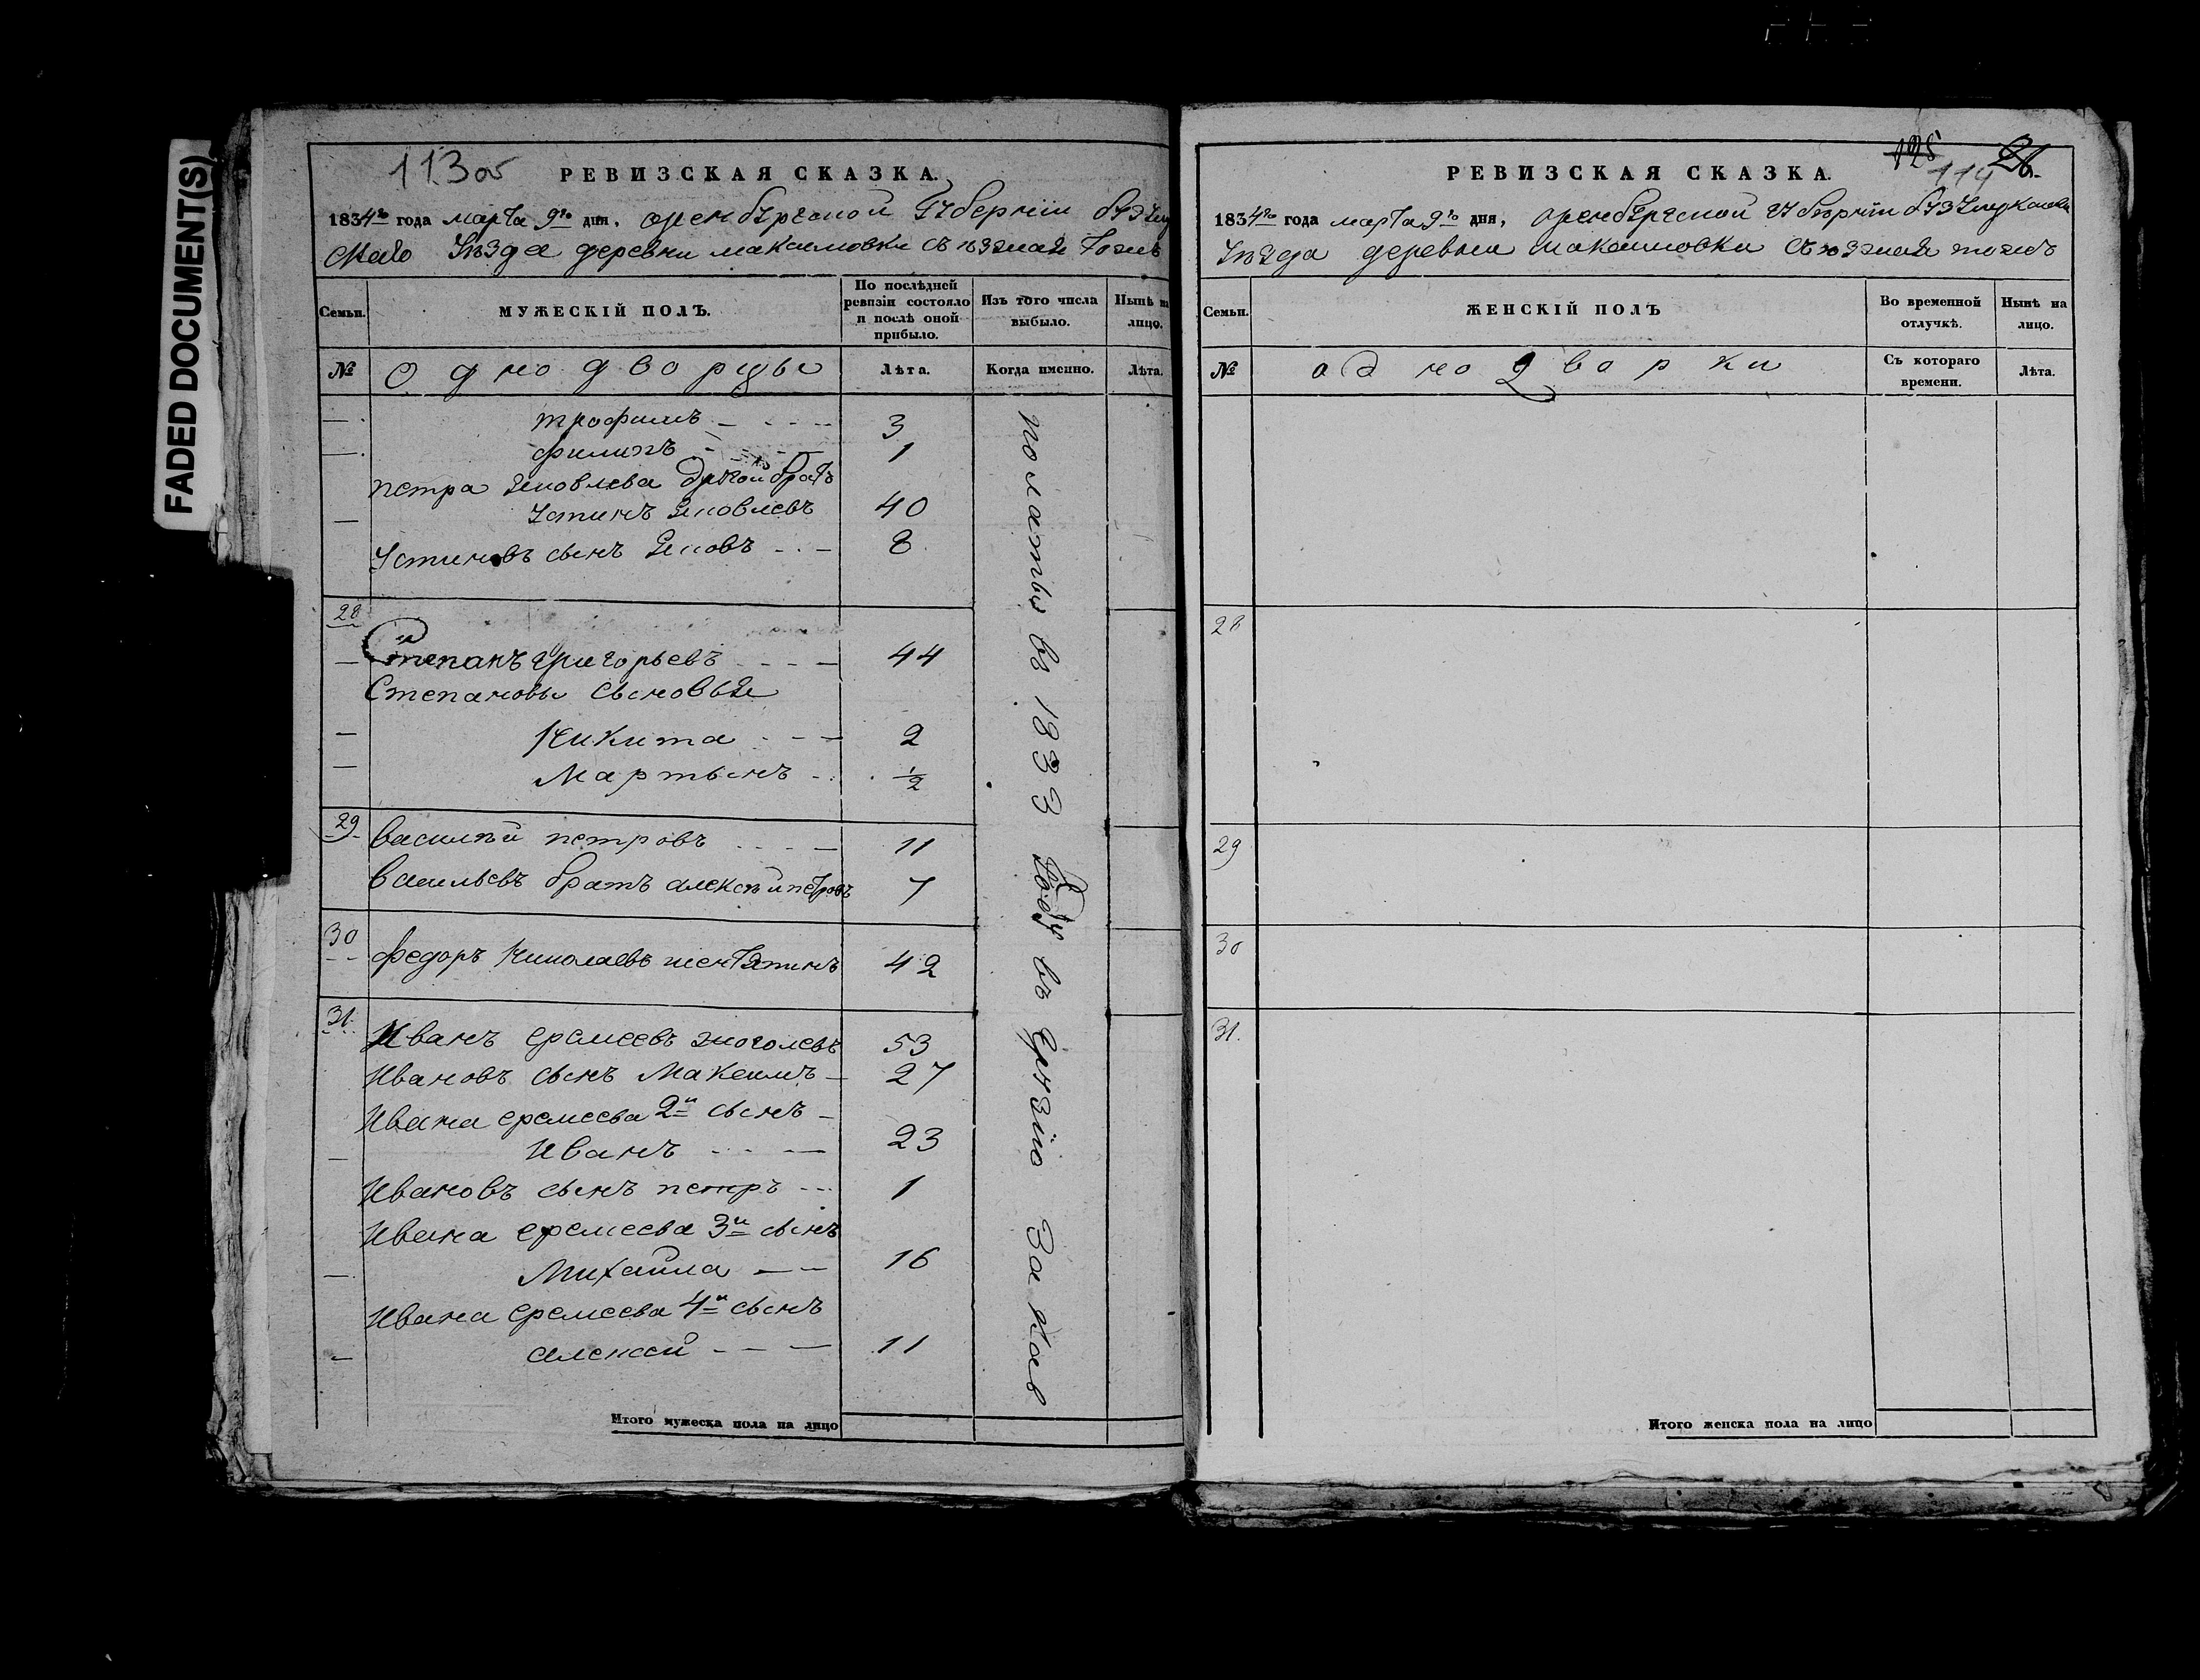 FADED DOCUMENT(S)
113об
РЕВИЗСКАЯ СКАЗКА.
1834го года марта 9го дня, оренбургской Губернии бузулу
скаго уѣзда деревни максимовки съѣзжая тожъ
Семьи.
МУЖЕСКІЙ ПОЛЪ.
По послѣдней ревизіи состояло и послѣ оной прибыло.
Изъ того числа выбыло.
Нынѣ на лицо.
№
Однодворцы
Лѣта.
Когда именно.
Лѣта.
трофимъ 3
филипъ 1
петра яковлева другой братъ
устинъ яковлевъ 40
устиновъ сынъ яковъ 8
28
Степанъ григорьевъ 44
Степановы сыновья
Никита 2
Мартынъ 1/2
29
василѣй петровъ 11
васильевъ братъ алексѣй петровъ 7
30
федоръ николаевъ 42
31.
Иванъ еремеевъ 53
Ивановъ сынъ Максимъ 27
Ивана еремеева 2й сынъ
Иванъ 23
Ивановъ сынъ петръ 1
Ивана еремеева 3й сынъ
Михаила 16
Ивана еремеева 4й сынъ
алексей 11
въ 1833 году въ За Кав
Итого мужеска пола на лицо
125
114
РЕВИЗСКАЯ СКАЗКА.
1834го года марта 9го дня, оренбургской губернии бузулукскаго
уѣзда деревни максимовки съѣзжая тожъ
Семьи.
ЖЕНСКІЙ ПОЛЪ
Во временной отлучкѣ.
Нынѣ на лицо.
№
однодворки
Съ котораго времени.
Лѣта.
28
29
30
31.
Итого женска пола на лицо